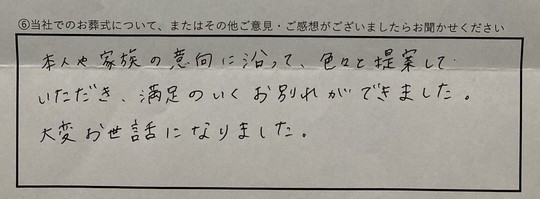 ⑥当社でのお葬式について、またはその他ご意見・ご感想がございましたらお聞かせください
本人や家族の意向に沿って、色々と提案して
いただき、満足のいくお別れができました。
大変お世話になりました。